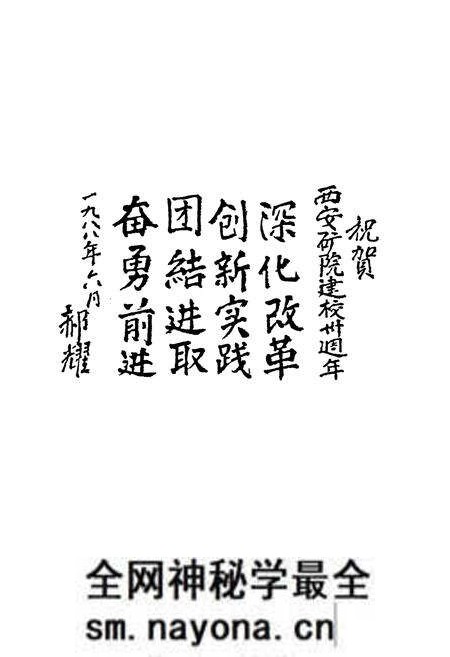 祝賀
西安矿院建校卅週年
深化改革
创新实践
团結进取
奋勇前进
一九八八年六月
郝耀
全网神秘学最全
sm.nayona.cn